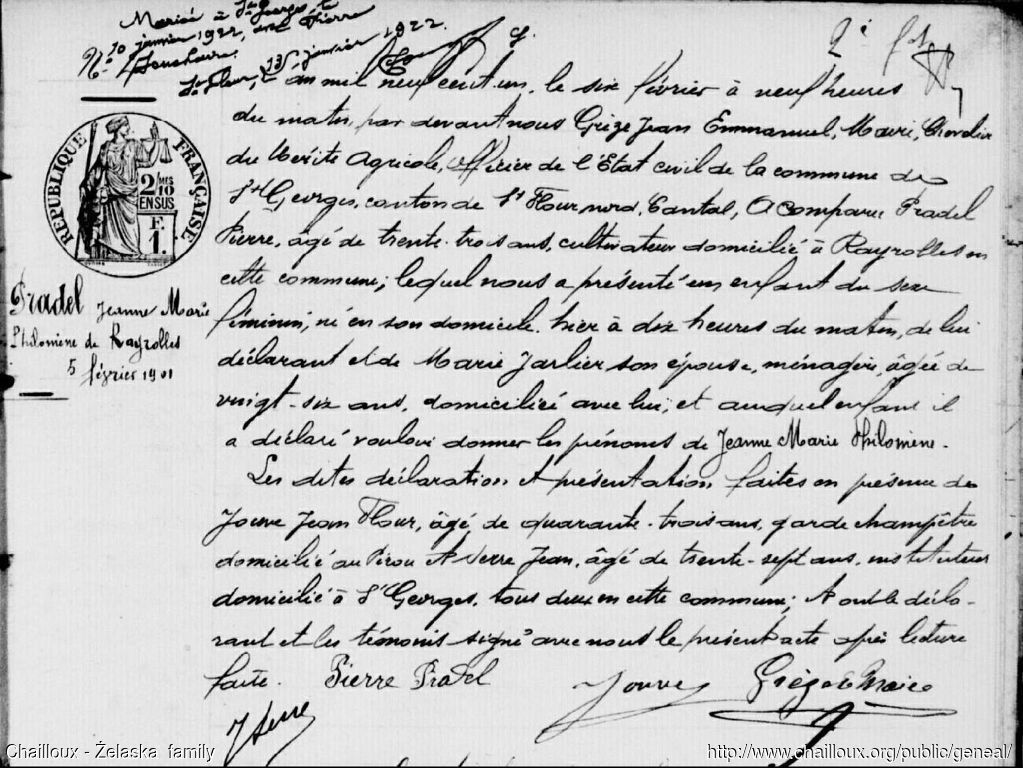 Mariée à St Georges, le
10 janvier 1922, avec Pierre
St Flour, le 13 janvier 1922.
2e
RÉPUBLIQUE FRANÇAISE
2 MES
10
EN SUS
F.
1.
Pradel Jeanne Marie
Philomène de Rayrolles
5 février 1901
L'an mil neuf cent un, le six février à neuf heures
du matin, par devant nous Grèze Jean Emmanuel, Maire, Chevalier
du Mérite Agricole, officier de l'Etat civil de la commune de
St Georges, canton de St Flour, nord, Cantal, A Comparu Pradel
Pierre, âgé de trente-trois ans, cultivateur domicilié à Rayrolles en
cette commune; lequel nous a présenté un enfant du sexe
féminin, né en son domicile hier à dix heures du matin, de lui
déclarant et de Marie Jarlier son épouse, ménagère, âgée de
vingt-six ans, domiciliée avec lui, et auquel enfant il
a déclaré vouloir donner les prénoms de Jeanne Marie Philomène.
Les dites déclaration et présentation faites en présence de
Jouve Jean Flour, âgé de quarante-trois ans, garde champêtre
domicilié au Pirou et Serre Jean, âgé de trente-sept ans, instituteur
domicilié à St Georges, tous deux en cette commune; et ont le décla-
rant et les témoins signé avec nous le présent acte après lecture
faite. Pierre Pradel Jouve Grèze Maire
J Serre
Chailloux - Želaska family
http://www.chailloux.org/public/geneal/